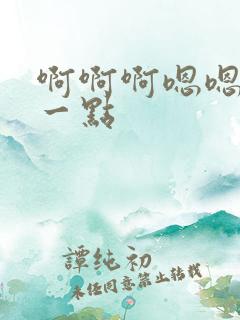 啊啊啊嗯嗯
一點
譚纯初
未经同意禁止转载